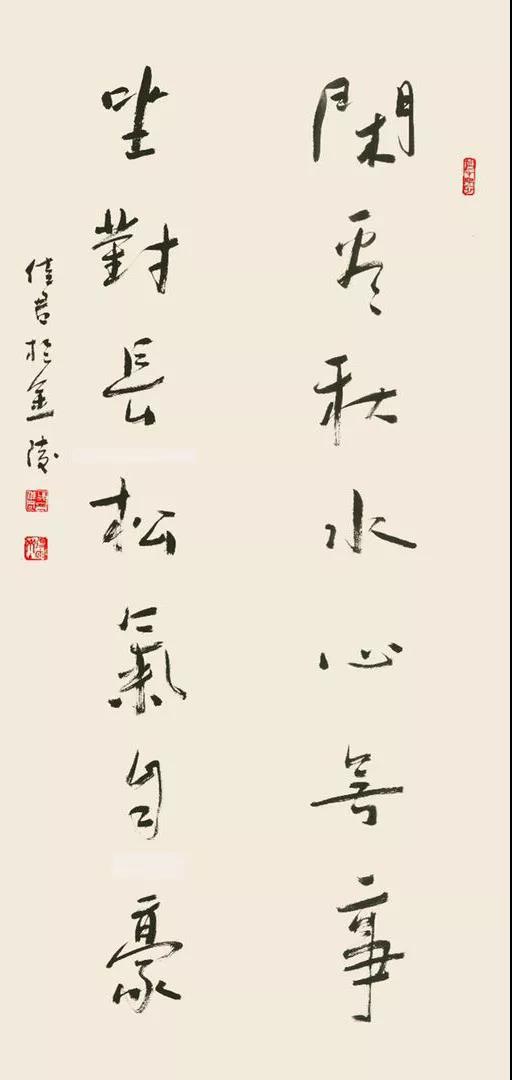 閑看秋水心無事
坐對長松氣自豪
佳君於金陵